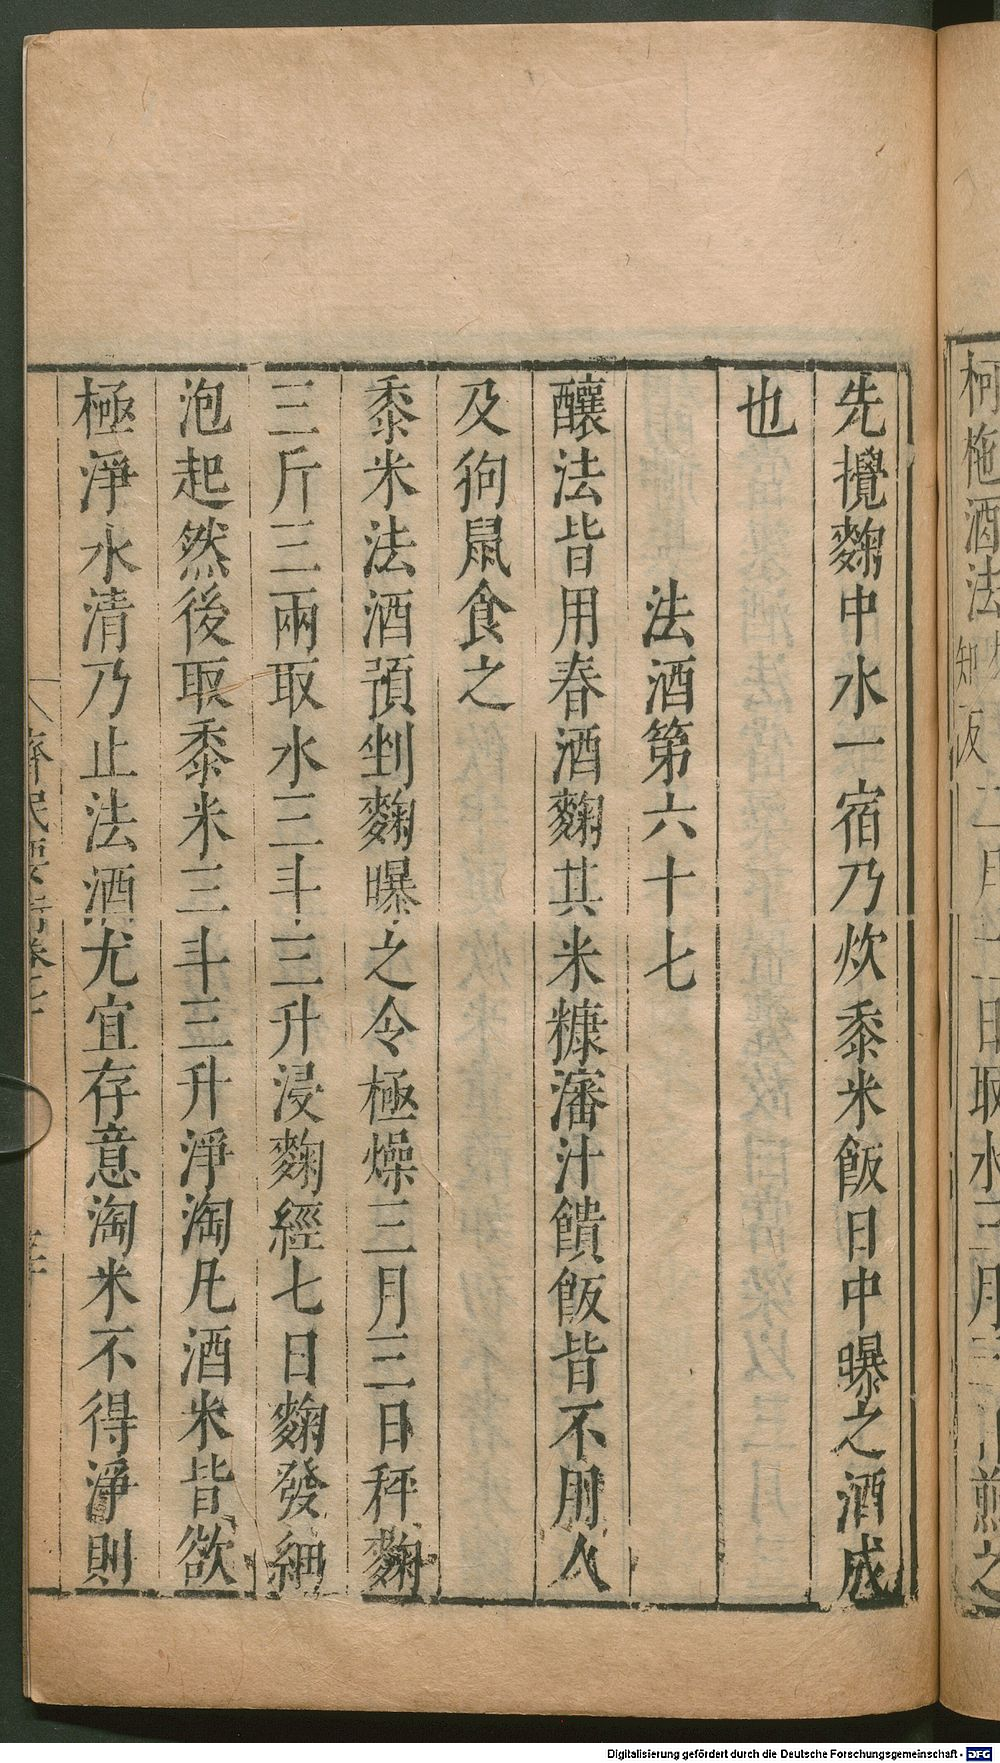 先攪麴中水一宿乃炊黍米飯日中曝之酒成
也
法酒第六十七
釀法皆用春酒麴其米糠瀋汁饙飯皆不用人
及狗鼠食之
黍米法酒預剉麴曝之令極燥三月三日秤麴
三斤三兩取水三斗三升浸麴經七日麴發細
泡起然後取黍米三斗三升淨淘凡酒米皆欲
極淨水清乃止法酒尤宜存意淘米不得淨則
齊民要術卷七
柯柂酒法
二月二日取水三月三日煎之
Digitalisierung gefördert durch die Deutsche Forschungsgemeinschaft - DFG